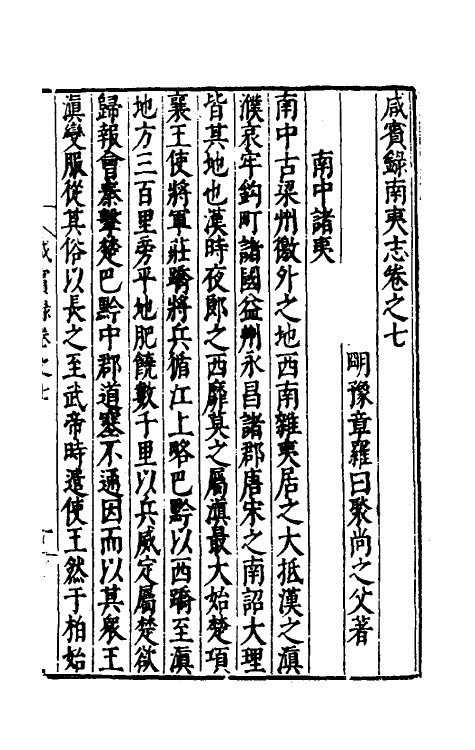 咸賓錄南夷志卷之七
明豫章羅曰褧尚之父著
南中諸夷
南中古梁州徼外之地西南雜夷居之大抵漢之滇
濮哀牢鉤町諸國益州永昌諸郡唐宋之南詔大理
皆其地也漢時夜郎之西靡莫之屬滇最大始楚項
襄王使將軍莊蹻將兵循江上略巴黔以西蹻至滇
地方三百里旁平地肥饒數千里以兵威定屬楚欲
歸報會秦擊楚巴黔中郡道塞不通因而以其衆王
滇變服從其俗以長之至武帝時遣使王然于柏始
咸賓錄卷之七
一